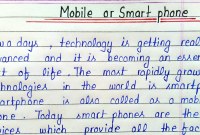 Mobile or Smart phone
a days, technology is getting real
vanced and it is becoming an essen
t of life. The most rapidly grow
hnologies in the world is smartp
artphone is also called as a mob
ne. Today smart phones are the
ices which provide all the fac